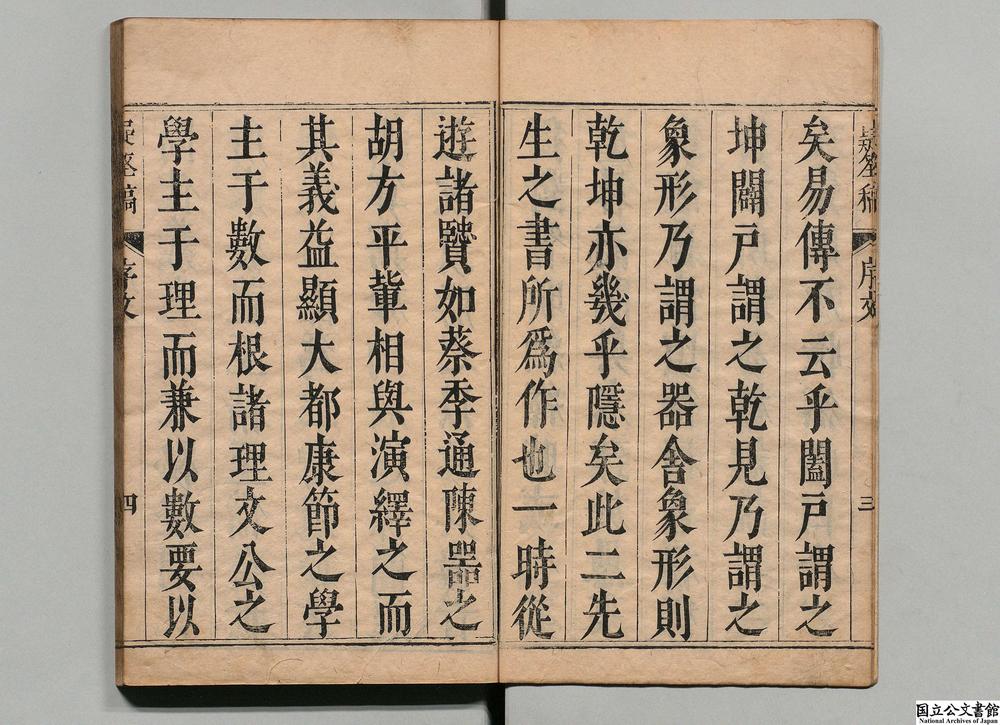 矣易傳不云乎闔戸謂之
坤闢戸謂之乾見乃謂之
象形乃謂之器舍象形則
乾坤亦幾乎隱矣此二先
生之書所爲作也一時從
遊諸賢如蔡季通陳器之
胡方平軰相與演繹之而
其義益顯大都康節之學
主于數而根諸理文公之
學主于理而兼以數要以
序文
三
稿
序文
四
国立公文書館
National Archives of Japan